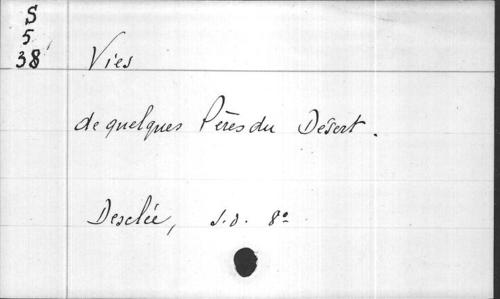 S
5
38
Vies
de quelques Pères du Désert.
Desclée, s.d. 8º